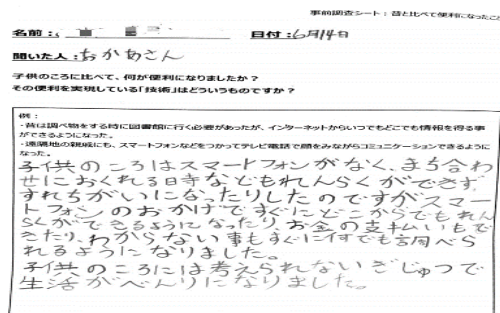 事前調査シート：昔と比べて便利になったこと
名前：
日付：6月14日
聞いた人：おかあさん
子供のころに比べて、何が便利になりましたか？
その便利を実現している「技術」はどういうものですか？
例：
・昔は調べ物をする時に図書館に行く必要があったが、インターネットからいつでもどこでも情報を得る事
ができるようになった。
・遠隔地の親戚にも、スマートフォンなどをつかってテレビ電話で顔をみながらコミュニケーションできるように
なった。
子供のころはスマートフォンがなく、まち合わ
せにおくれる時などもれんらくができず、
すれちがいになったりしたのですがスマー
トフォンのおかげですぐにどこからでもれん
らくができるようになったり、お金の支払いもで
きたり、わからない事もすぐに何でも調べら
れるようになりました。
子供のころには考えられないぎじゅつで
生活がべんりになりました。